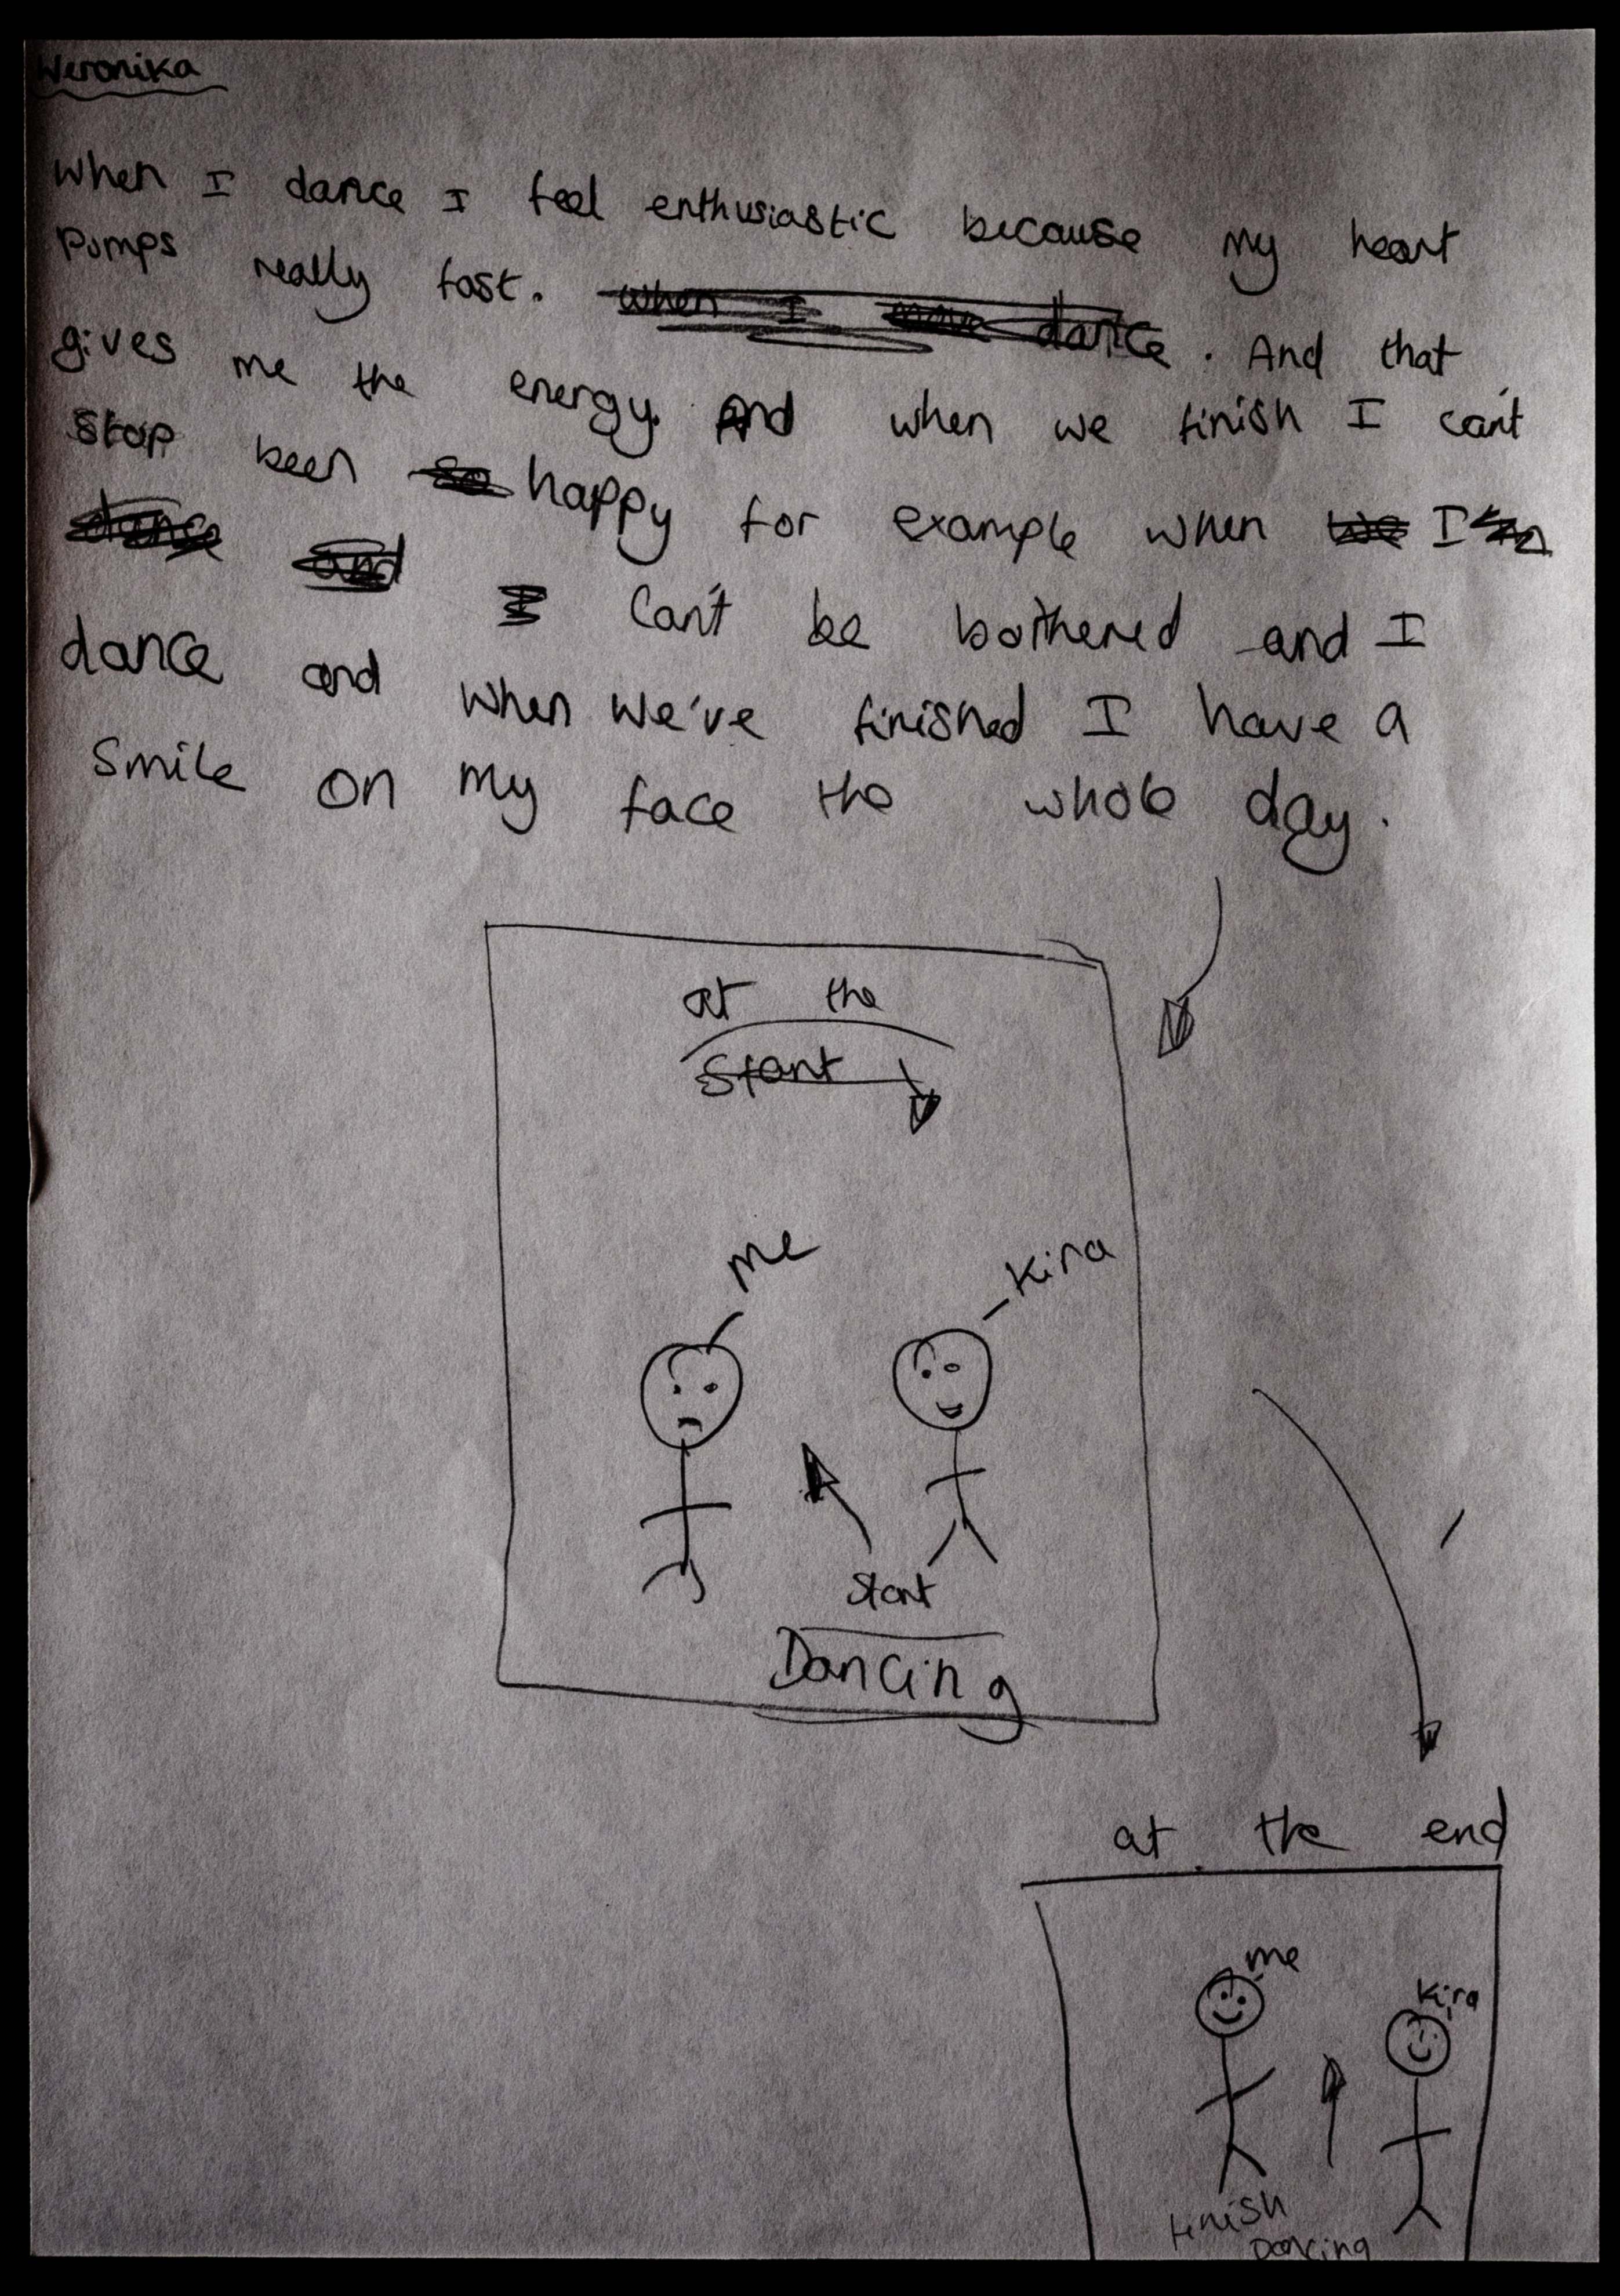 Weronika
When I dance I feel enthusiastic because my heart
pumps really fast. when I move dance. And that
gives me the energy. And when we finish I can't
stop been so happy for example when we I
dance and I can't be bothered and I
dance and when we've finished I have a
smile on my face the whole day.
at the
start
me
Kira
start
Dancing
at the end
me
Kira
finish
Dancing